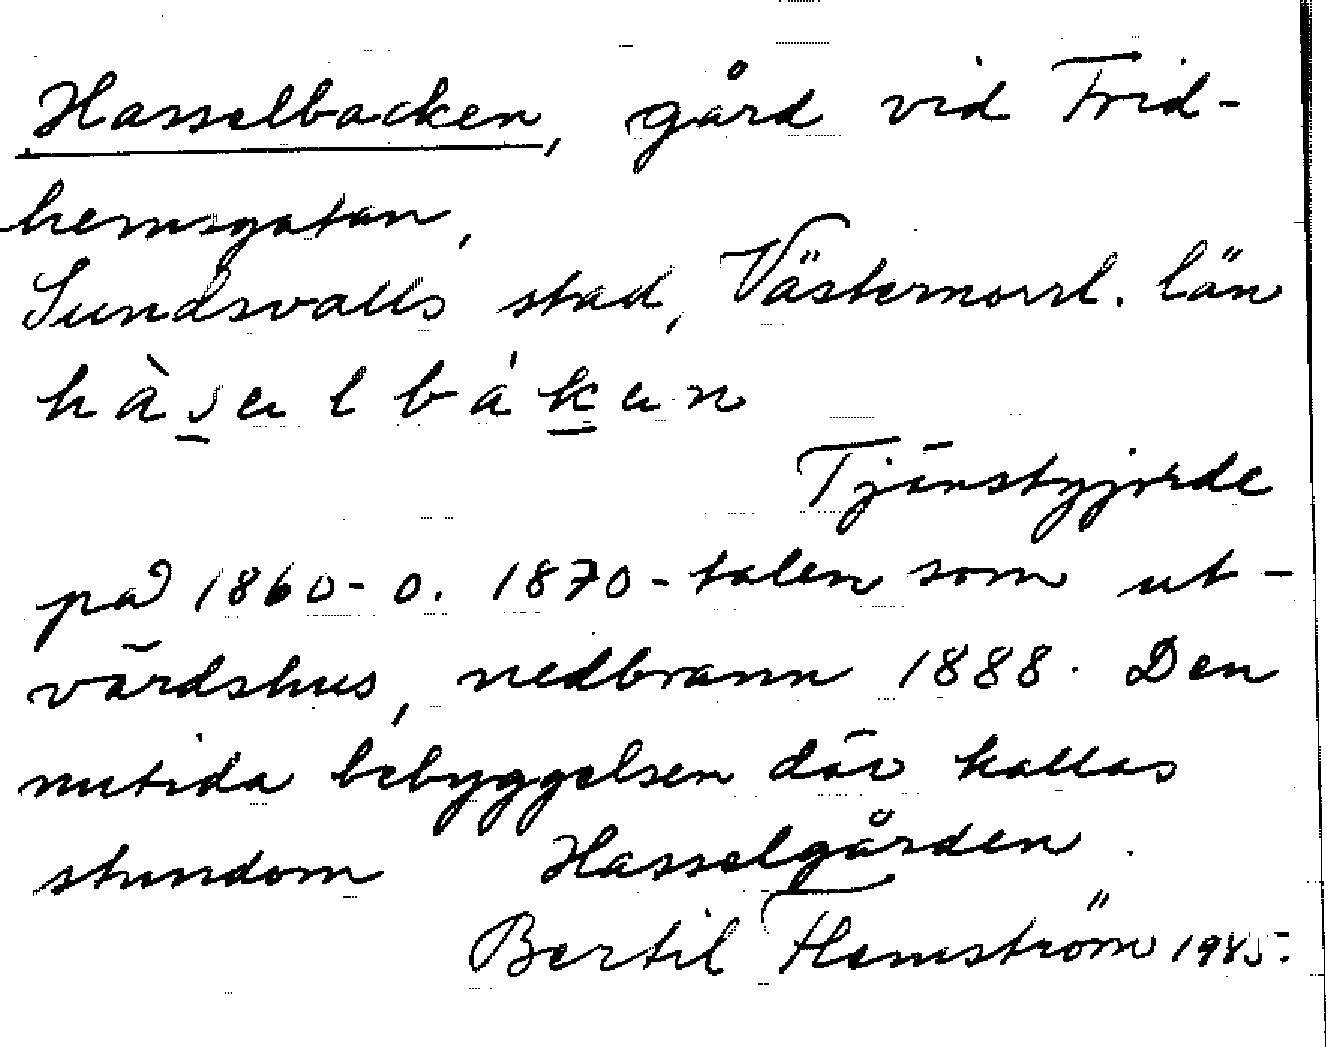 Hasselbacken, gård vid Frid-
hemsgatan,
Sundsvalls stad, Västernorrl. län
hàselbákan
Tjänstgjorde
på 1860- o. 1870-talen som ut-
värdshus, nedbrann 1888. Den
nutida bebyggelsen där kallas
stundom Hasselgården.
Bertil Flemström